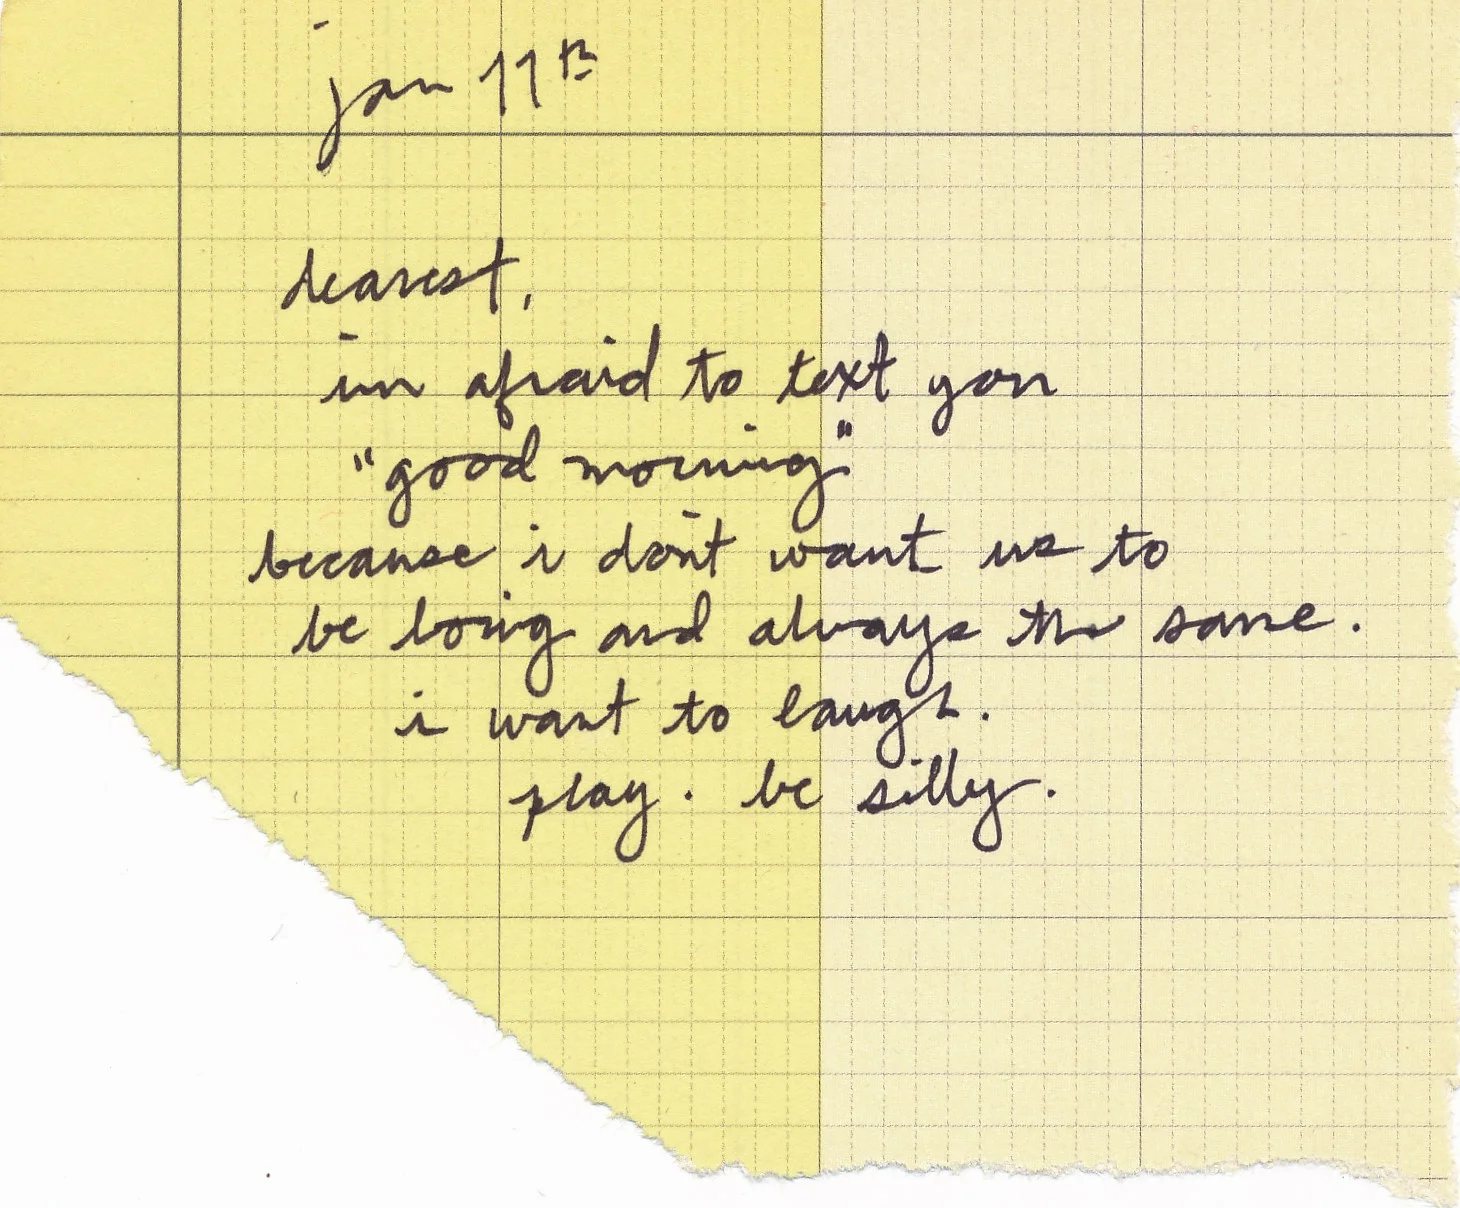 jan 11th
dearest,
im afraid to text you
"good morning"
because i don't want us to
be boring and always the same.
i want to laugh.
play. be silly.